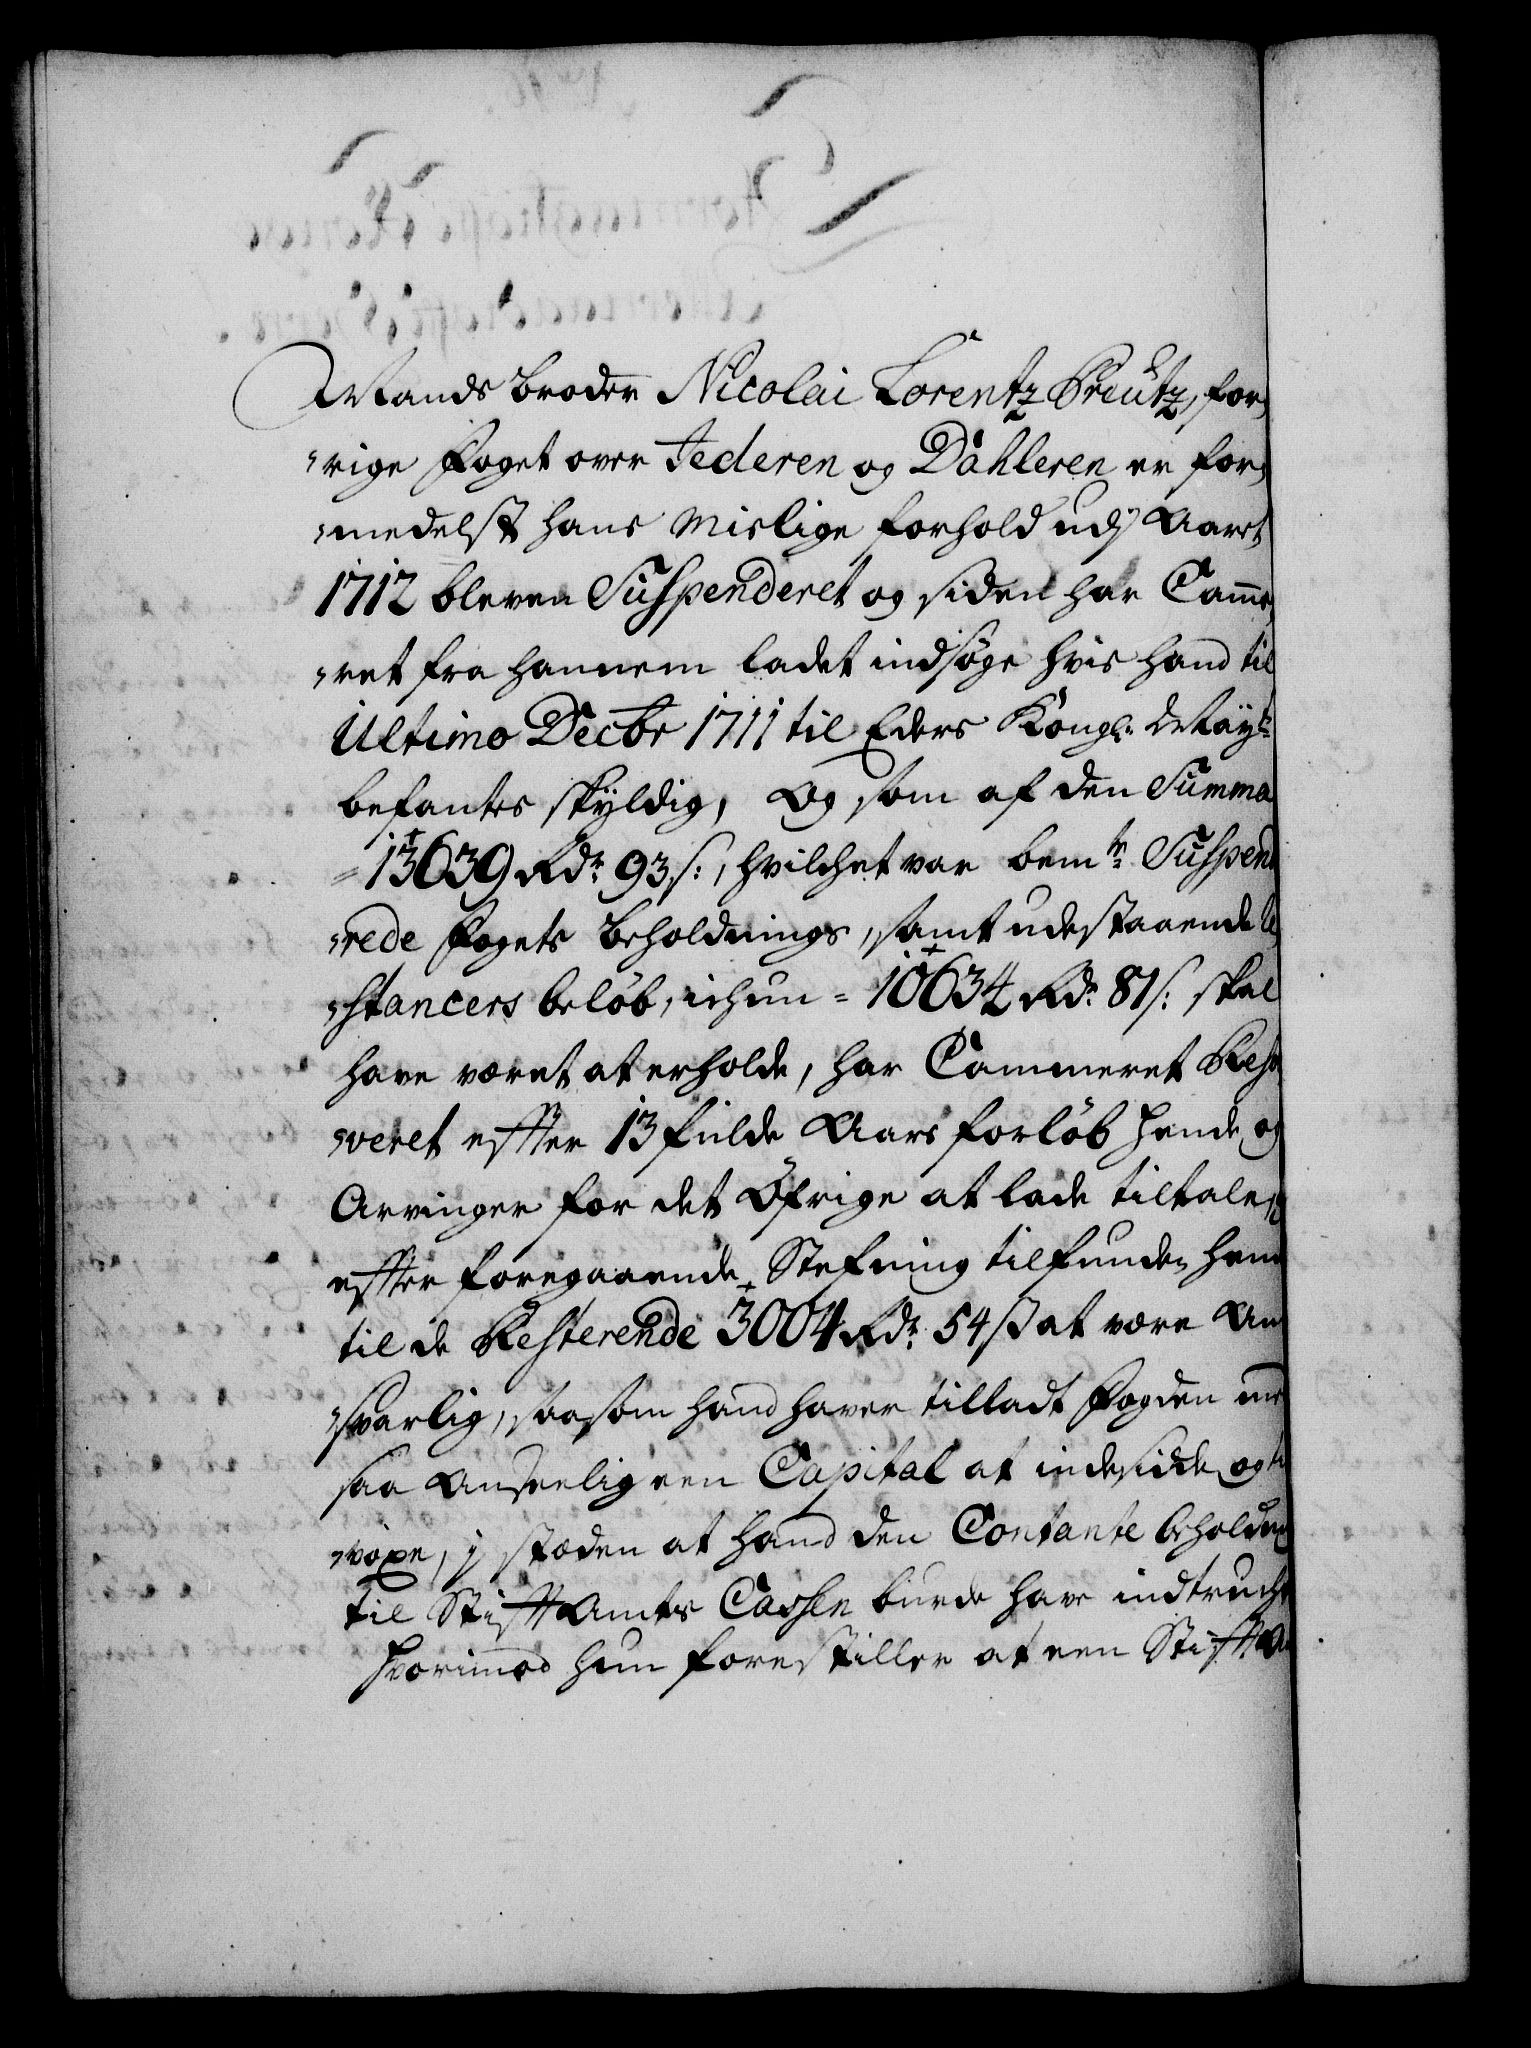 Mands broder Nicolai Lorentz Preutz, for,
,rige Foget over Jederen og Dahleren er for,
,medelst hans mislige forhold udj Aaret
1712 bleven Suspenderet og siden har Camme,
,ret fra hannem ladet indsøge hvis hand til
Ultimo Decbr 1711 til Eders Kongl: May:ts
befantes skyldig, Og som af den Summa
= 13639 Rdr 93 s:, hvilchet var bem:te Suspend
,rede Fogets beholdnings, samt udestaaende Re
,stancers beløb, ichun = 10634 Rdr 81 s: skal
have været at erholde, har Cammeret Resol
,veret effter 13 fulde Aars forløb hende og
Arvinger for det Øfrige at lade tiltale,
effter foregaaende Stefning tilfunden hende
til de Resterende 3004 Rdr 54 ß at være An
,svarlig, saasom hand haver tilladt Fogden med
saa Anseelig een Capital at indesidde og til
,voxe, j stæden at hand den Contante beholdning
til StifftAmts Cassen burde have indtrucht
hvorimod hun forestiller at een StifftA